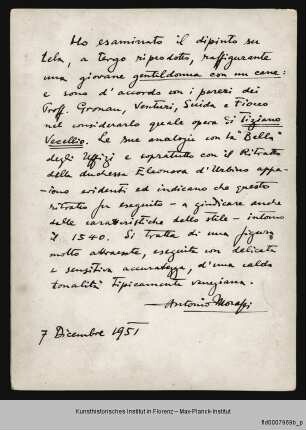 Ho esaminato il dipinto su
tela, a tergo riprodotto, raffigurante
una giovane gentildonna con un cane:
e sono d'accordo con i pareri dei
Proff. Gronau, Venturi, Suida e Fiocco
nel considerarlo quale opera di Tiziano
Vecellio. Le sue analogie con la "Bella"
degli Uffizi e sopratutto con il Ritratto
della duchessa Eleonora d'Urbino appa-
iono evidenti ed indicano che questo
ritratto fu eseguito - a giudicare anche
dalle caratteristiche dello stile - intorno
il 1540. Si tratta di una figura
molto attraente, eseguita con delicata
e sensitiva accuratezza, d'una calda
tonalità tipicamente veneziana.
— Antonio Morassi
7 Dicembre 1951
Kunsthistorisches Institut in Florenz – Max-Planck-Institut
fld0007969b_p